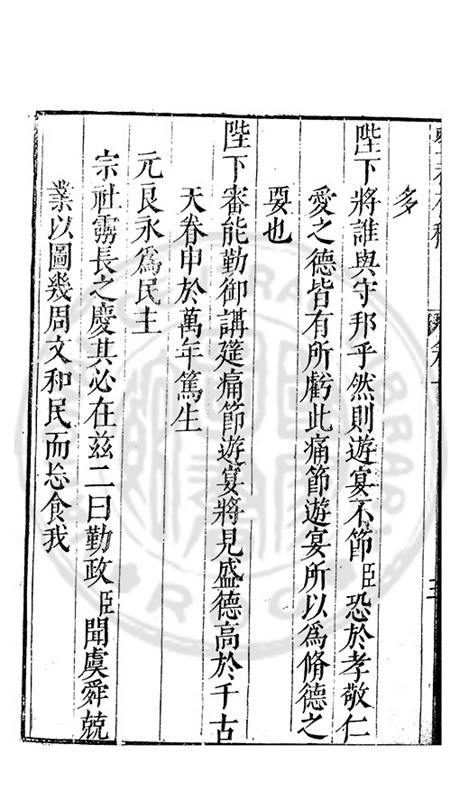 多
陛下將誰與守邦乎然則遊宴不節臣恐於孝敬仁
愛之德皆有所虧此痛節遊宴所以為脩德之
要也
陛下審能勤御講筵痛節遊宴將見盛德高於千古
天眷申於萬年篤生
元良永為民主
宗社靈長之慶其必在兹二曰勤政臣聞虞舜兢
業以圖幾周文和民而忘食我